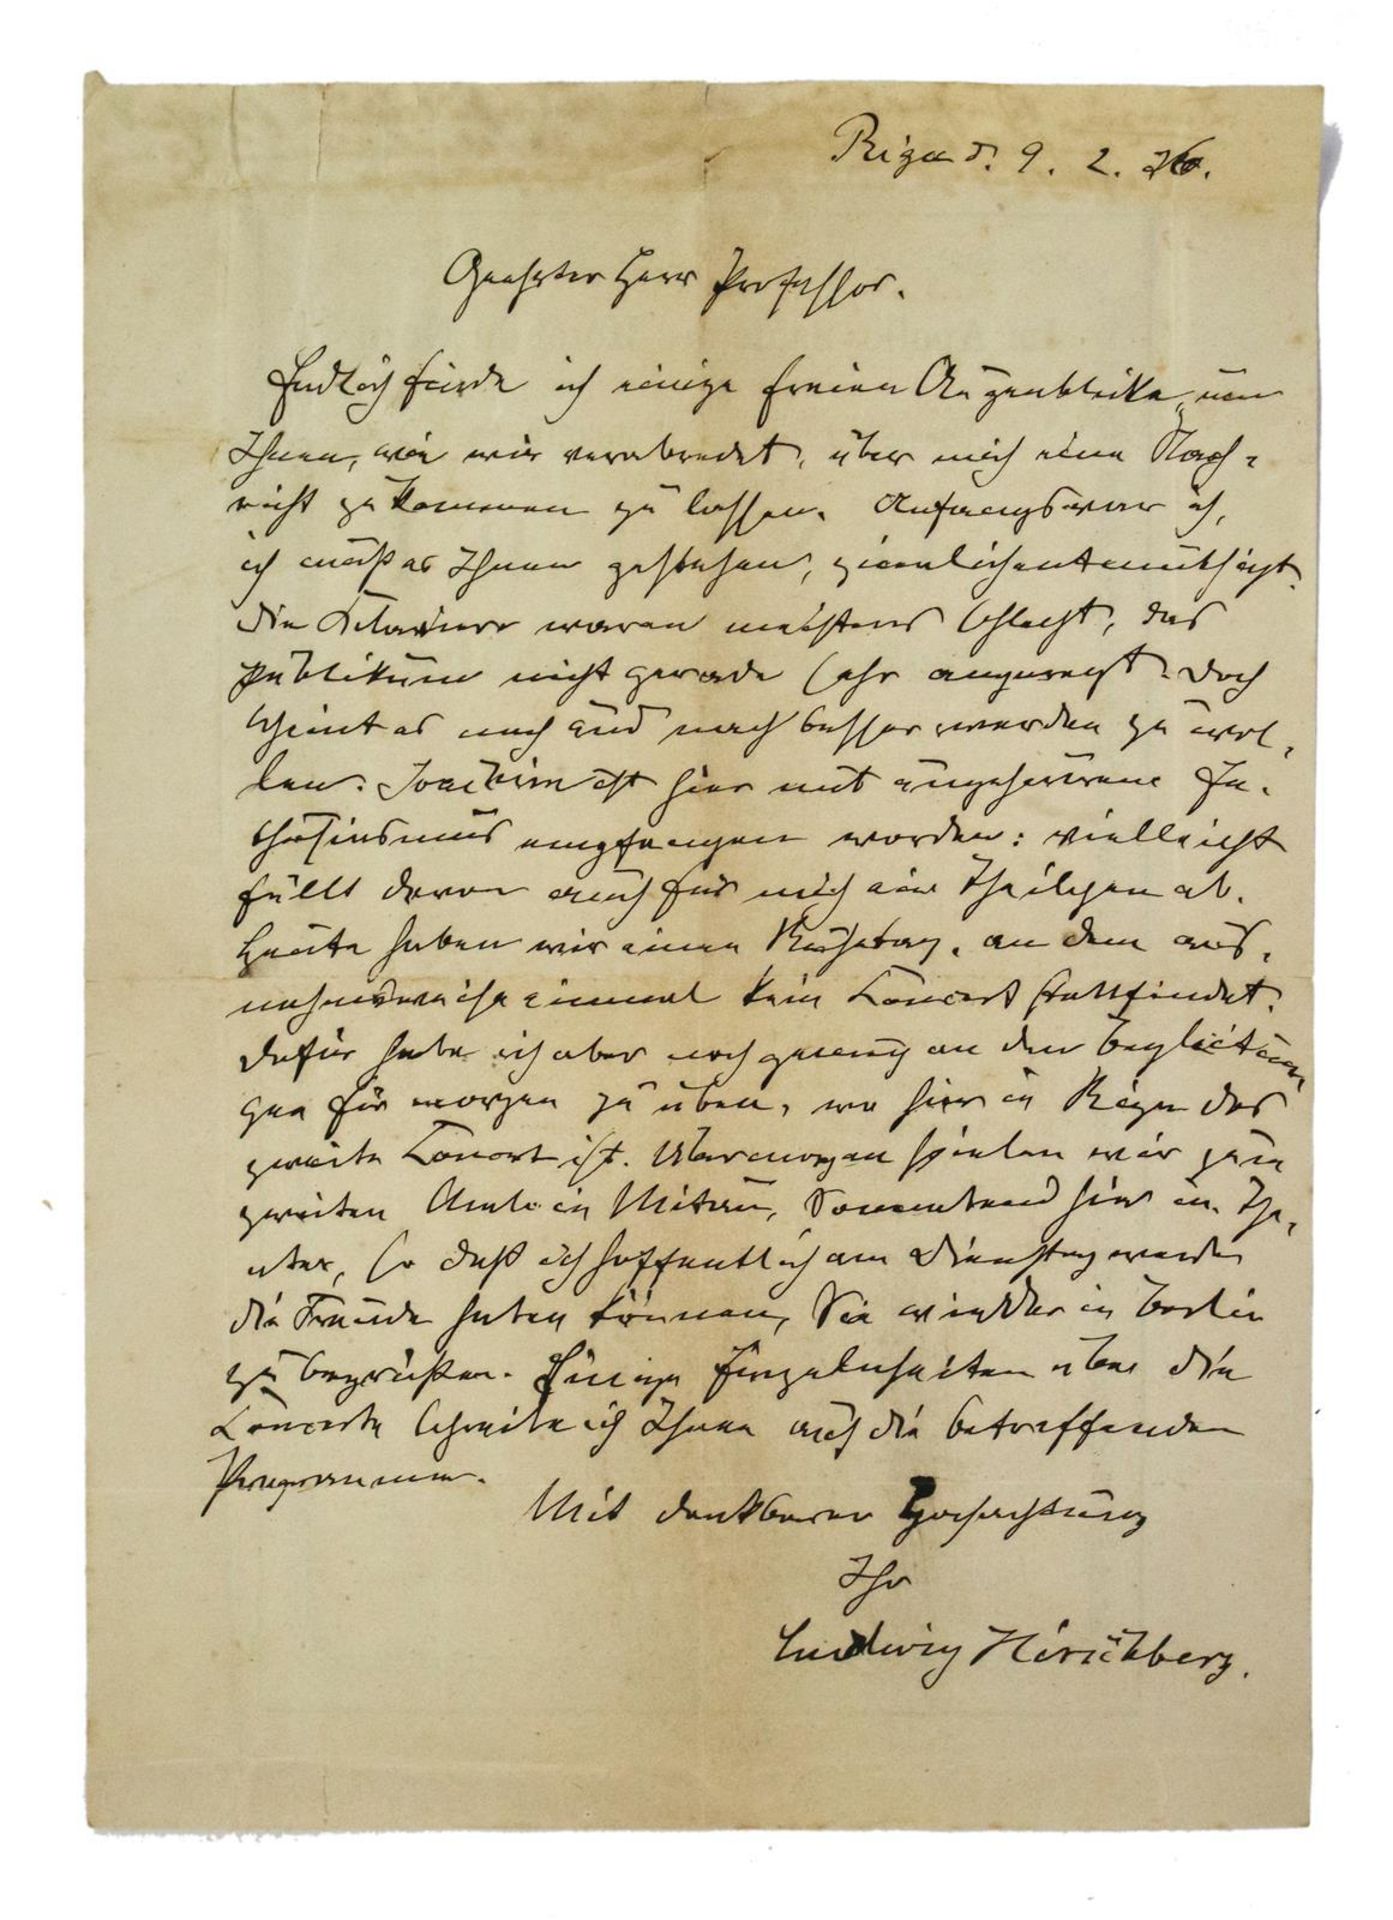 Riga d. 9. 2. 76.
Geehrter Herr Professor.
Endlich finde ich einige freien Augenblicke, um
Ihnen, wie wir verabredet, über mich eine Nach-
richt zukommen zu lassen. Anfangs war ich,
ich muß es Ihnen gestehen, ziemlich entmuthigt.
Die Klaviere waren meistens schlecht, das
Publikum nicht gerade sehr angeregt. Doch
scheint es nach und nach besser werden zu wol-
len. Joachim ist hier mit ungeheurem En-
thusiasmus empfangen worden: vielleicht
fällt davon auch für mich ein Theilchen ab.
Heute haben wir einen Ruhetag, an dem aus-
nahmsweise einmal kein Concert stattfindet.
Dafür habe ich aber noch genug an den Begleitun
gen für morgen zu üben, wo hier in Riga das
zweite Concert ist. Übermorgen spielen wir zum
zweiten Male in Mitau, Sonnabend hier im The-
ater, so daß ich hoffentlich am Dienstag werde
die Freude haben können, Sie wieder in Berlin
zu begrüßen. Einige Einzelnheiten über die
Concerte schreibe ich Ihnen auf die betreffenden
Programme.
Mit dankbarer Hochachtung
Ihr
Ludwig Hirschberg.